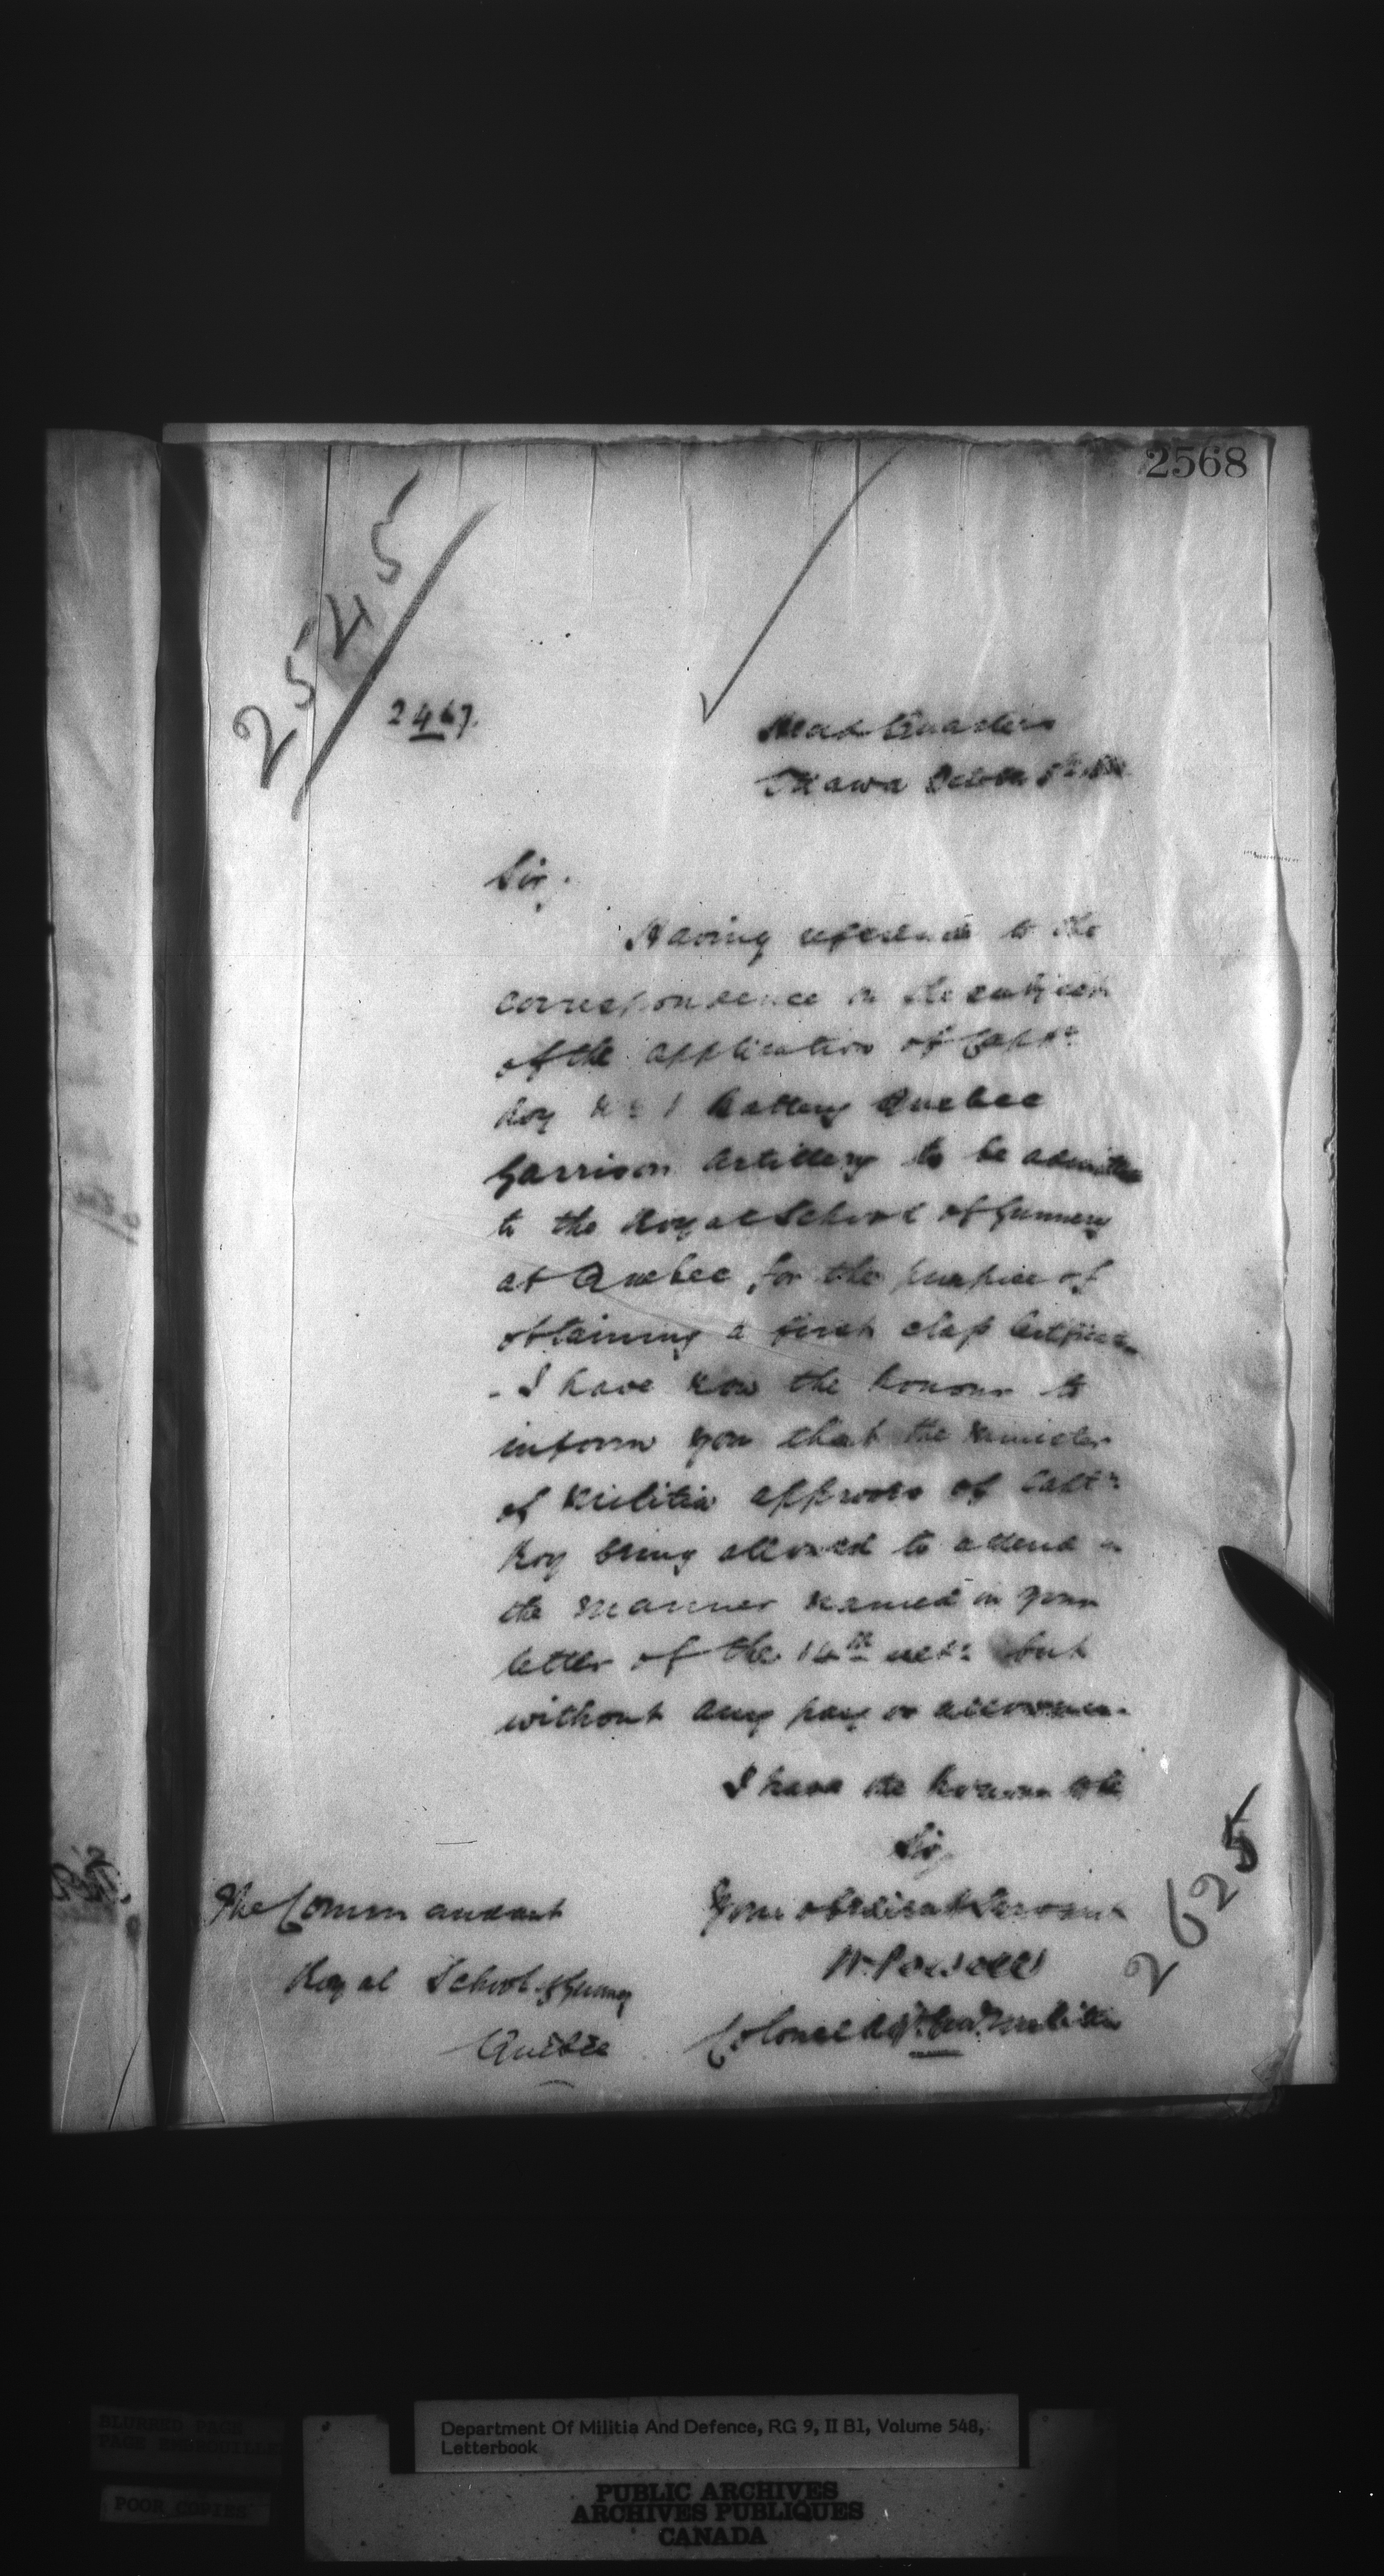 2568
2545
2467.
Head Quarters
Ottawa October 5th
Sir,
Having reference to the
correspondence on the subject
of the application of Capt.
Roy No 1 Battery Quebec
Garrison Artillery to be admitted
to the Royal School of Gunnery
at Quebec, for the purpose of
obtaining a first class Certificate
- I have now the honour to
inform you that the Minister
of Militia approves of Capt.
Roy being allowed to attend in
the manner named in your
letter of the 14th ult: but
without any pay or allowance.
I have the honour to be
Sir,
Your obedient Servant
W. Powell
Colonel Adjt. Genl. Militia
The Commandant
Royal School of Gunnery
Quebec
2625
BLURRED PAGE
PAGE EMBROUILLEE
POOR COPIES
Department Of Militia And Defence, RG 9, II B1, Volume 548,
Letterbook
PUBLIC ARCHIVES
ARCHIVES PUBLIQUES
CANADA